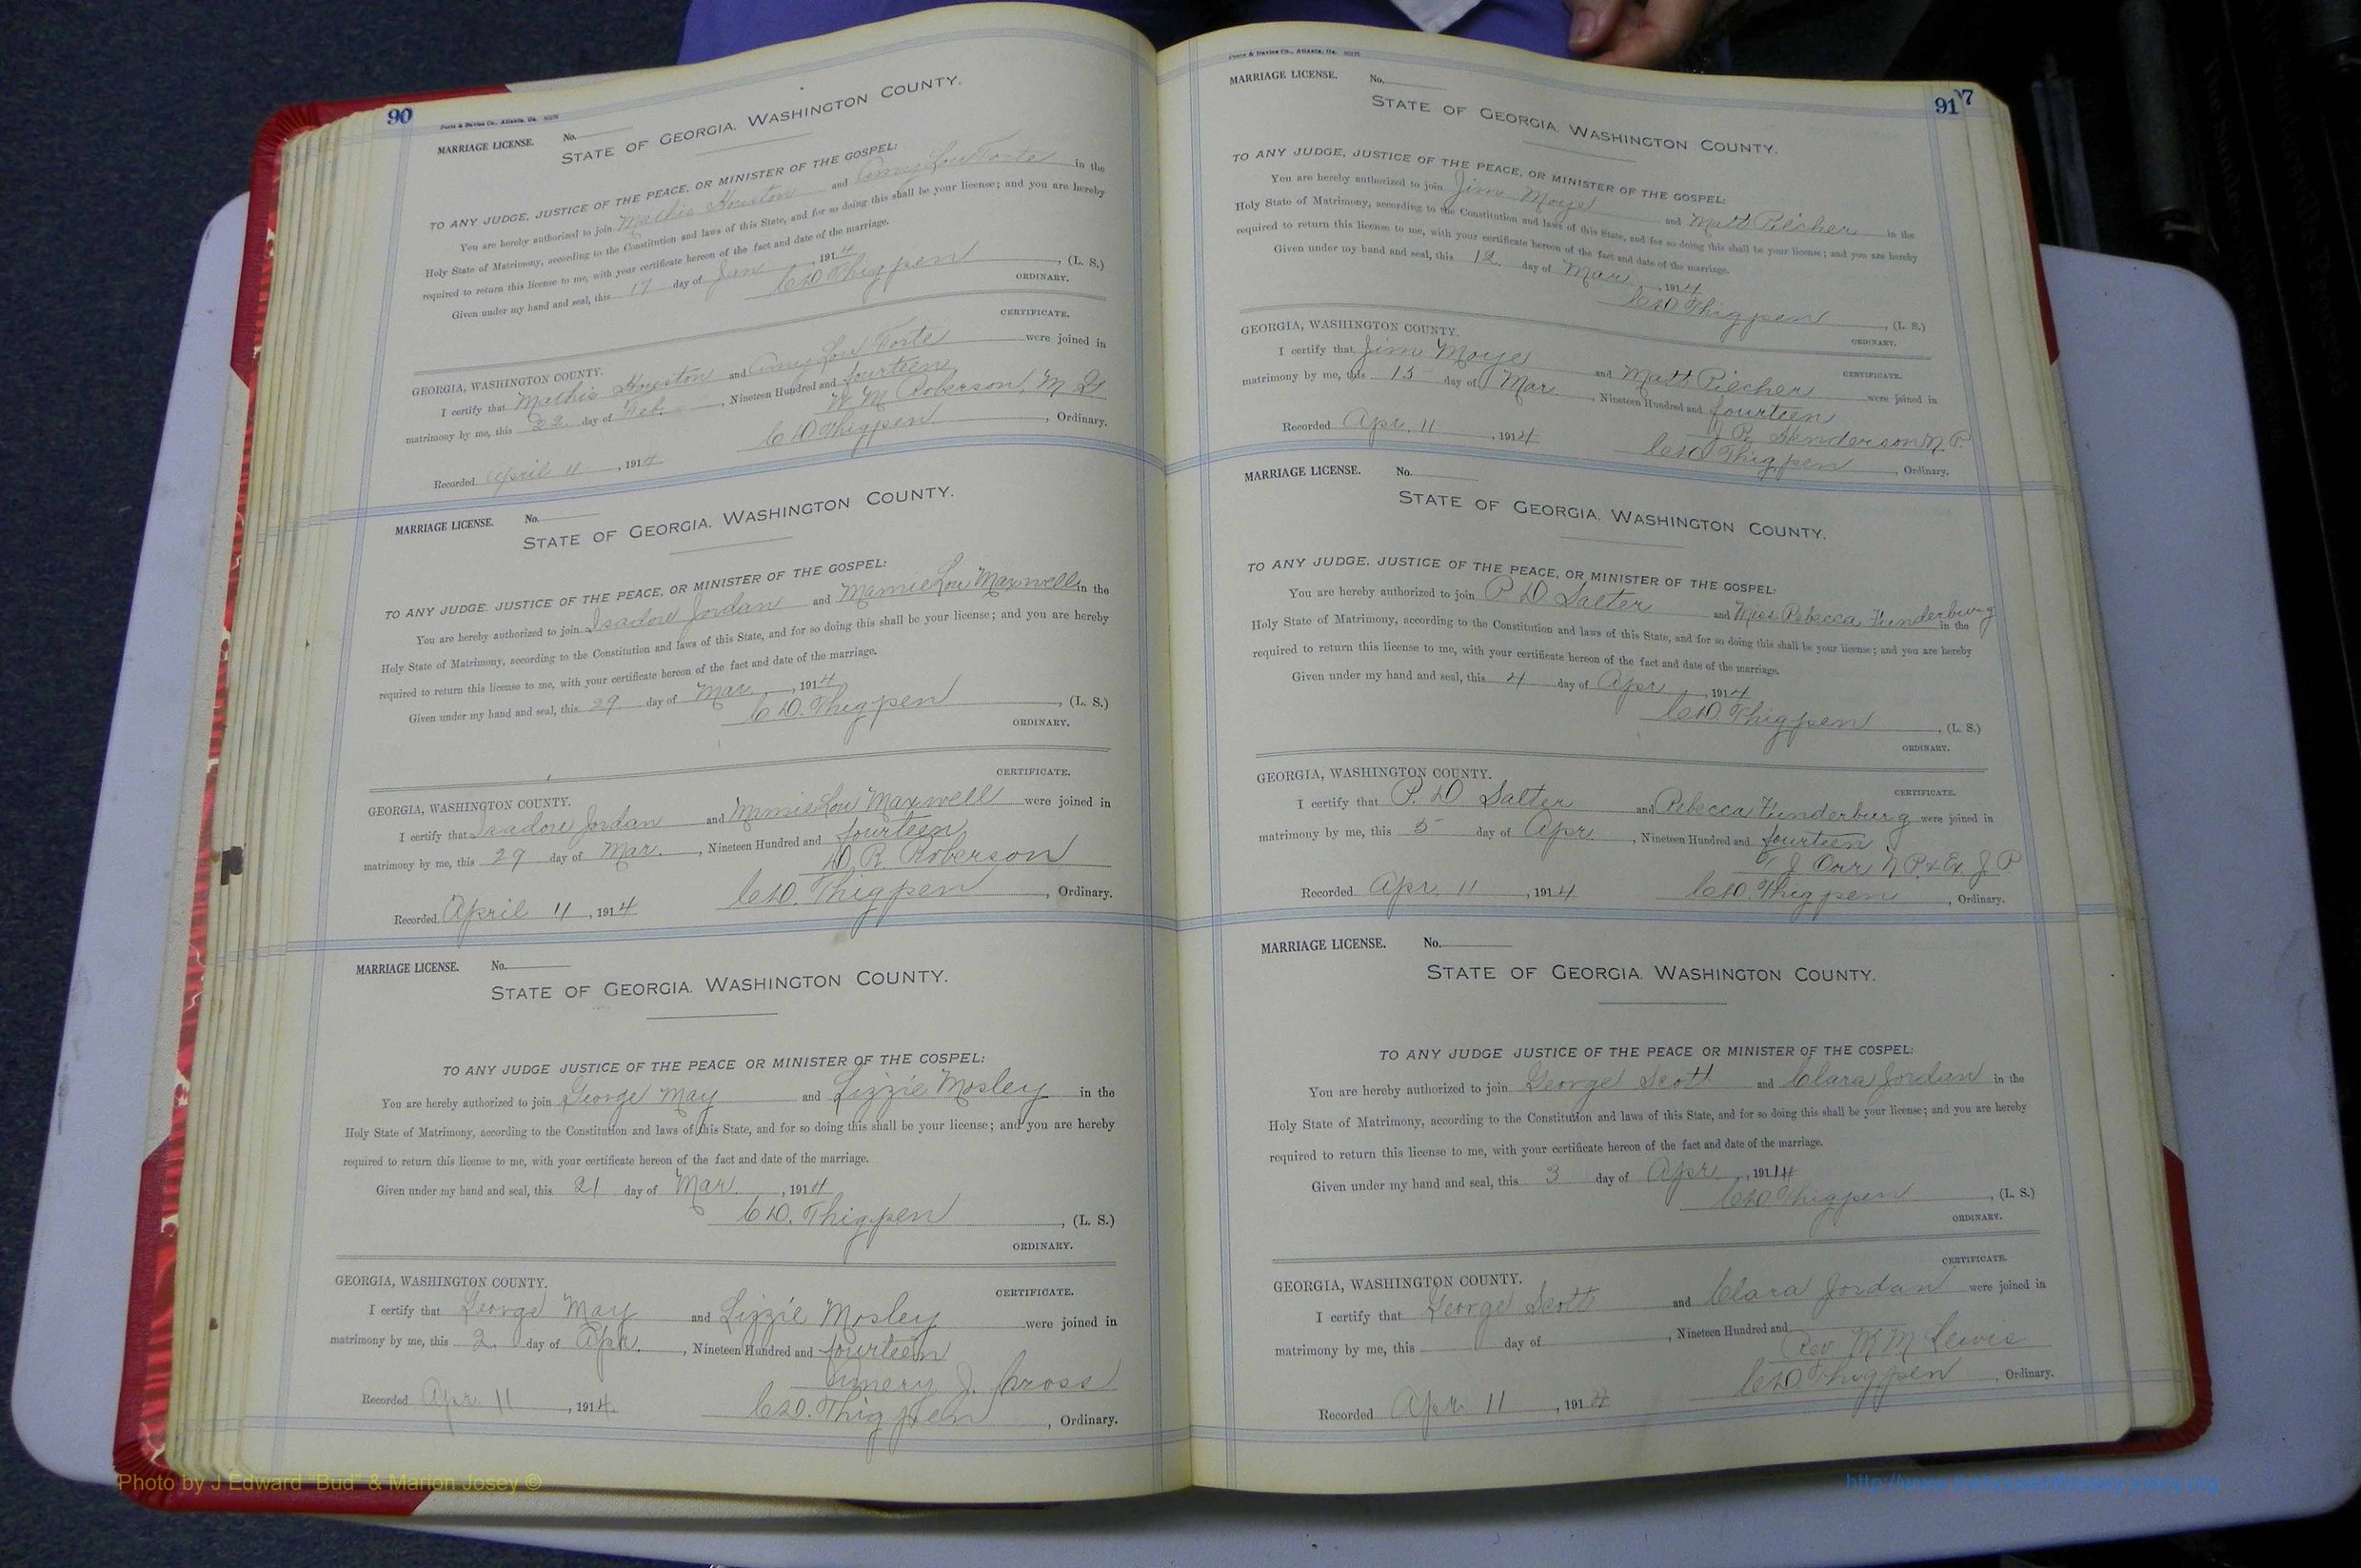 90
Foote & Davies Co., Atlanta, Ga.
MARRIAGE LICENSE. No.
STATE OF GEORGIA, WASHINGTON COUNTY.
TO ANY JUDGE, JUSTICE OF THE PEACE, OR MINISTER OF THE GOSPEL:
You are hereby authorized to join Mathis Houston and Amy Lou Forte in the
Holy State of Matrimony, according to the Constitution and laws of this State, and for so doing this shall be your license; and you are hereby
required to return this license to me, with your certificate hereon of the fact and date of the marriage.
Given under my hand and seal, this 17 day of Jan, 1914
C. D. Thigpen, (L. S.)
ORDINARY.
CERTIFICATE.
GEORGIA, WASHINGTON COUNTY.
I certify that Mathis Houston and Amy Lou Forte were joined in
matrimony by me, this 22 day of Feb., Nineteen Hundred and fourteen
W. M. Roberson, M G
Recorded April 11, 1914 C. D. Thigpen, Ordinary.
MARRIAGE LICENSE. No.
STATE OF GEORGIA, WASHINGTON COUNTY.
TO ANY JUDGE, JUSTICE OF THE PEACE, OR MINISTER OF THE GOSPEL:
You are hereby authorized to join Isadore Jordan and Mamie Lou Maxwell in the
Holy State of Matrimony, according to the Constitution and laws of this State, and for so doing this shall be your license; and you are hereby
required to return this license to me, with your certificate hereon of the fact and date of the marriage.
Given under my hand and seal, this 29 day of Mar, 1914
C. D. Thigpen, (L. S.)
ORDINARY.
CERTIFICATE.
GEORGIA, WASHINGTON COUNTY.
I certify that Isadore Jordan and Mamie Lou Maxwell were joined in
matrimony by me, this 29 day of Mar., Nineteen Hundred and fourteen
D. R. Roberson
Recorded April 11, 1914 C. D. Thigpen, Ordinary.
MARRIAGE LICENSE. No.
STATE OF GEORGIA, WASHINGTON COUNTY.
TO ANY JUDGE JUSTICE OF THE PEACE OR MINISTER OF THE GOSPEL:
You are hereby authorized to join George May and Lizzie Mosley in the
Holy State of Matrimony, according to the Constitution and laws of this State, and for so doing this shall be your license; and you are hereby
required to return this license to me, with your certificate hereon of the fact and date of the marriage.
Given under my hand and seal, this 21 day of Mar., 1914
C. D. Thigpen, (L. S.)
ORDINARY.
CERTIFICATE.
GEORGIA, WASHINGTON COUNTY.
I certify that George May and Lizzie Mosley were joined in
matrimony by me, this 2 day of Apr., Nineteen Hundred and fourteen
Emery J. Cross
Recorded Apr. 11, 1914. C. D. Thigpen, Ordinary.
91
7
Foote & Davies Co., Atlanta, Ga.
MARRIAGE LICENSE. No.
STATE OF GEORGIA, WASHINGTON COUNTY.
TO ANY JUDGE, JUSTICE OF THE PEACE, OR MINISTER OF THE GOSPEL:
You are hereby authorized to join Jim Moye and Matt Piecher in the
Holy State of Matrimony, according to the Constitution and laws of this State, and for so doing this shall be your license; and you are hereby
required to return this license to me, with your certificate hereon of the fact and date of the marriage.
Given under my hand and seal, this 12 day of Mar, 1914
C. D. Thigpen, (L. S.)
ORDINARY.
CERTIFICATE.
GEORGIA, WASHINGTON COUNTY.
I certify that Jim Moye and Matt Piecher were joined in
matrimony by me, this 15 day of Mar, Nineteen Hundred and fourteen
J R Henderson N. P.
Recorded Apr. 11, 1914 C. D. Thigpen, Ordinary.
MARRIAGE LICENSE. No.
STATE OF GEORGIA, WASHINGTON COUNTY.
TO ANY JUDGE, JUSTICE OF THE PEACE, OR MINISTER OF THE GOSPEL:
You are hereby authorized to join P. D Salter and Miss Rebecca Funderburg in the
Holy State of Matrimony, according to the Constitution and laws of this State, and for so doing this shall be your license; and you are hereby
required to return this license to me, with your certificate hereon of the fact and date of the marriage.
Given under my hand and seal, this 4 day of Apr, 1914
C. D. Thigpen, (L. S.)
ORDINARY.
CERTIFICATE.
GEORGIA, WASHINGTON COUNTY.
I certify that P. D Salter and Rebecca Funderburg were joined in
matrimony by me, this 5 day of Apr, Nineteen Hundred and fourteen
J Orr N P. & Ex J P.
Recorded Apr. 11, 1914 C. D. Thigpen, Ordinary.
MARRIAGE LICENSE. No.
STATE OF GEORGIA, WASHINGTON COUNTY.
TO ANY JUDGE JUSTICE OF THE PEACE OR MINISTER OF THE GOSPEL:
You are hereby authorized to join George Scott and Clara Jordan in the
Holy State of Matrimony, according to the Constitution and laws of this State, and for so doing this shall be your license; and you are hereby
required to return this license to me, with your certificate hereon of the fact and date of the marriage.
Given under my hand and seal, this 3 day of Apr, 1914
C. D. Thigpen, (L. S.)
ORDINARY.
CERTIFICATE.
GEORGIA, WASHINGTON COUNTY.
I certify that George Scott and Clara Jordan were joined in
matrimony by me, this day of, Nineteen Hundred and
Rev. M M Lewis
Recorded Apr. 11, 1914 C. D. Thigpen, Ordinary.
Photo by J Edward "Bud" & Marion Josey ©